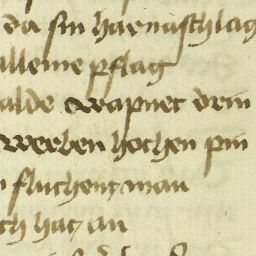 da sin harnaschlag
alleine pflag
alde wapnet drin
werben hochen pin
fluchentz man
ch hatz an